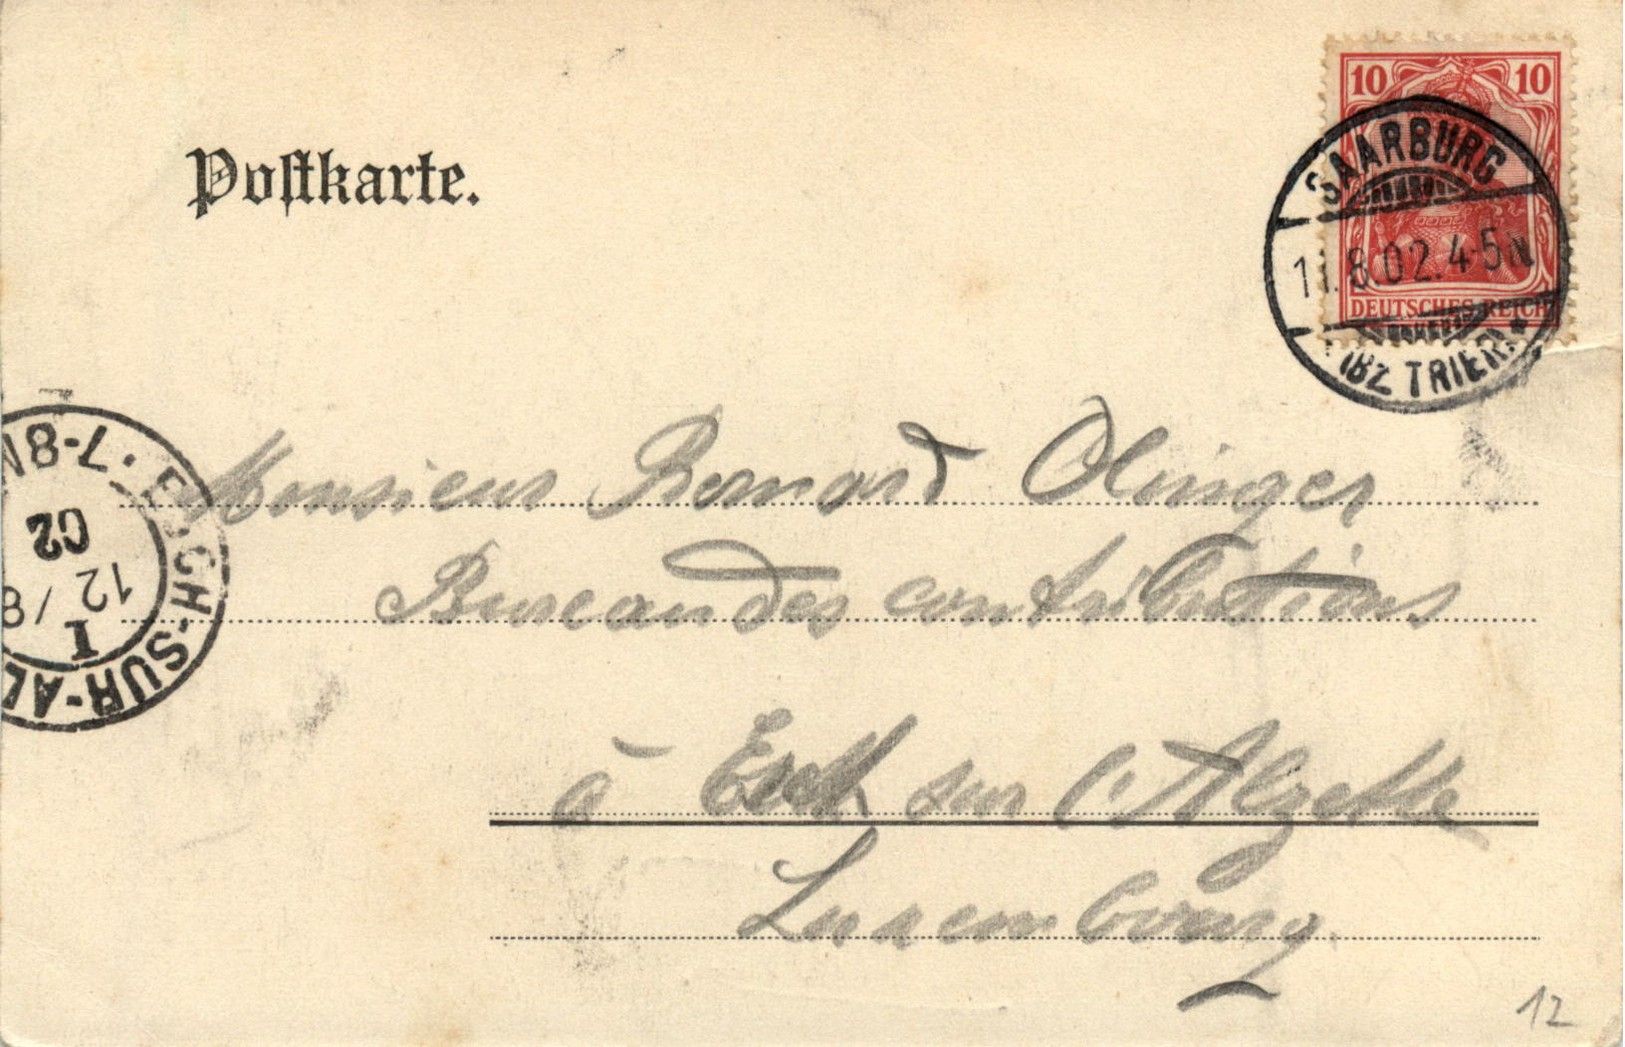 Postkarte.
10 10
DEUTSCHES REICH
SAARBURG
11.8.02.4-5N
(BZ TRIER) *
ESCH-SUR-AL
7-8N
12/8
02
I
Monsieur Bernard Olinger
Bureau des contributions
à Esch sur l'Alzette
Luxembourg
12